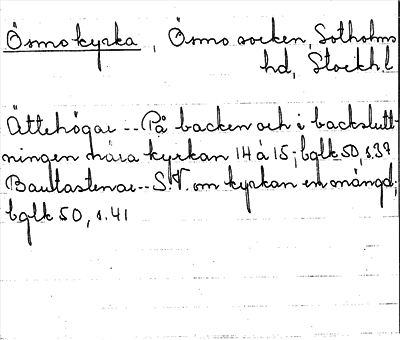 Ösmo kyrka, Ösmo socken, Sotholms
hd, Stockh l
Ättehögar -- På backen och i backslutt-
ningen nära kyrkan 14 à 15; bglk 50, s.37
Bautastenar -- S.V. om kyrkan en mängd;
bglk 50, s.41